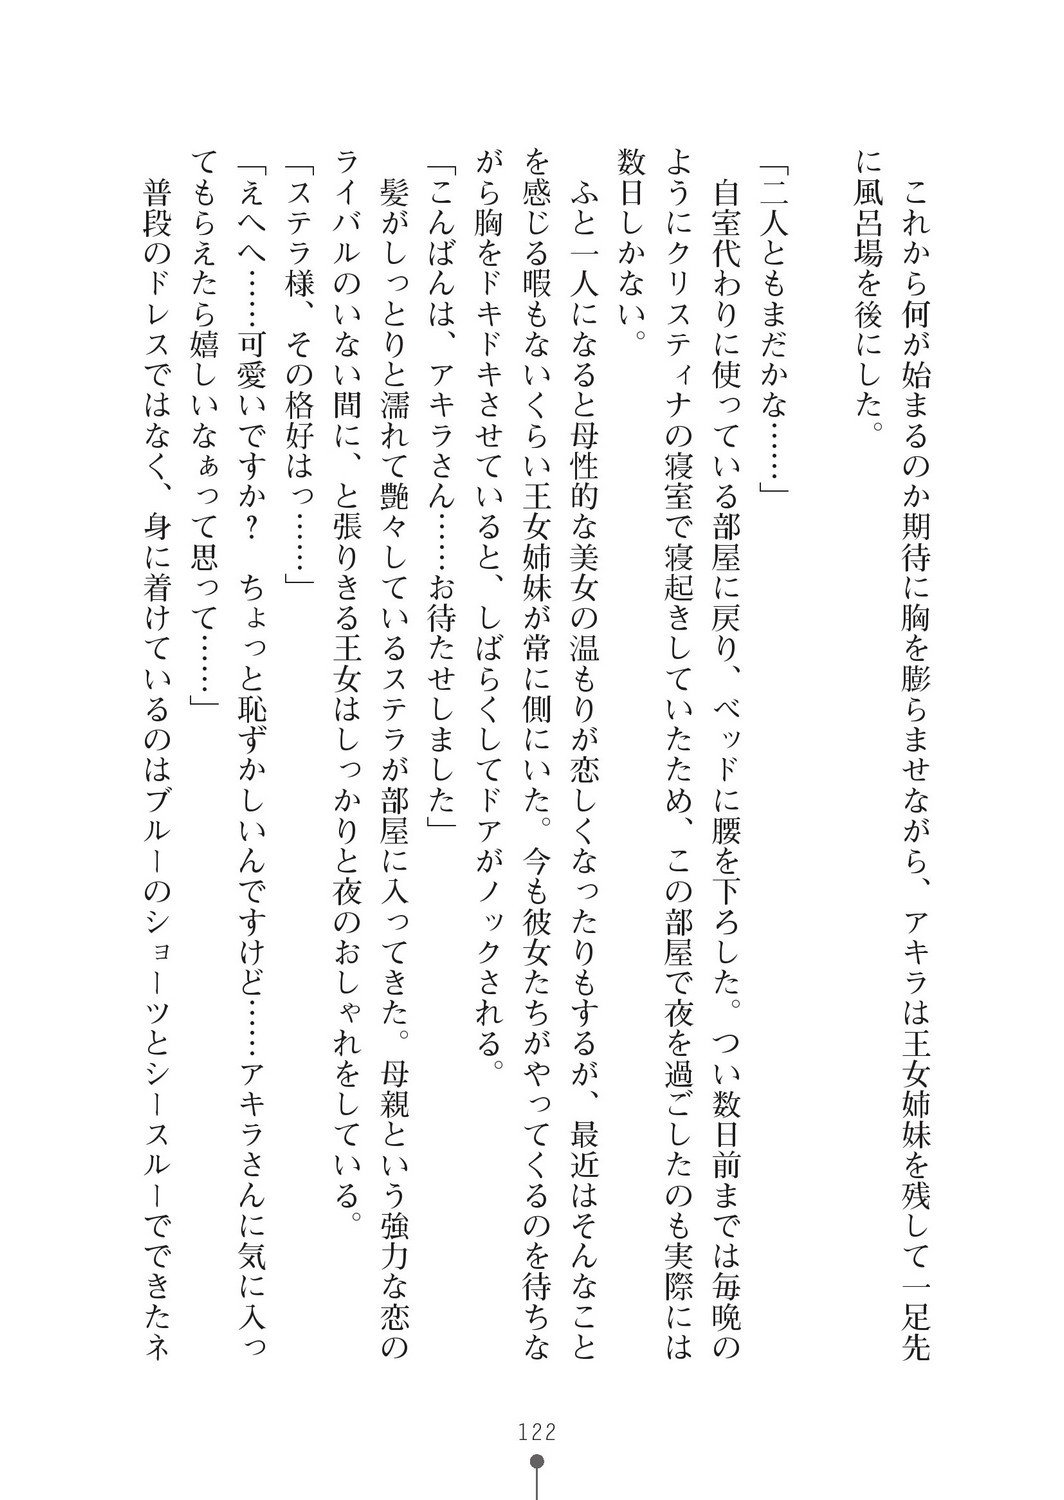 これから何が始まるのか期待に胸を膨らませながら、アキラは王女姉妹を残して一足先
に風呂場を後にした。
「二人ともまだかな……」
　自室代わりに使っている部屋に戻り、ベッドに腰を下ろした。つい数日前までは毎晩の
ようにクリスティナの寝室で寝起きしていたため、この部屋で夜を過ごしたのも実際には
数日しかない。
　ふと一人になると母性的な美女の温もりが恋しくなったりもするが、最近はそんなこと
を感じる暇もないくらい王女姉妹が常に側にいた。今も彼女たちがやってくるのを待ちな
がら胸をドキドキさせていると、しばらくしてドアがノックされる。
「こんばんは、アキラさん……お待たせしました」
　髪がしっとりと濡れて艶々しているステラが部屋に入ってきた。母親という強力な恋の
ライバルのいない間に、と張りきる王女はしっかりと夜のおしゃれをしている。
「ステラ様、その格好はっ……」
「えへへ……可愛いですか？　ちょっと恥ずかしいんですけど……アキラさんに気に入っ
てもらえたら嬉しいなぁって思って……」
　普段のドレスではなく、身に着けているのはブルーのショーツとシースルーでできたネ
122